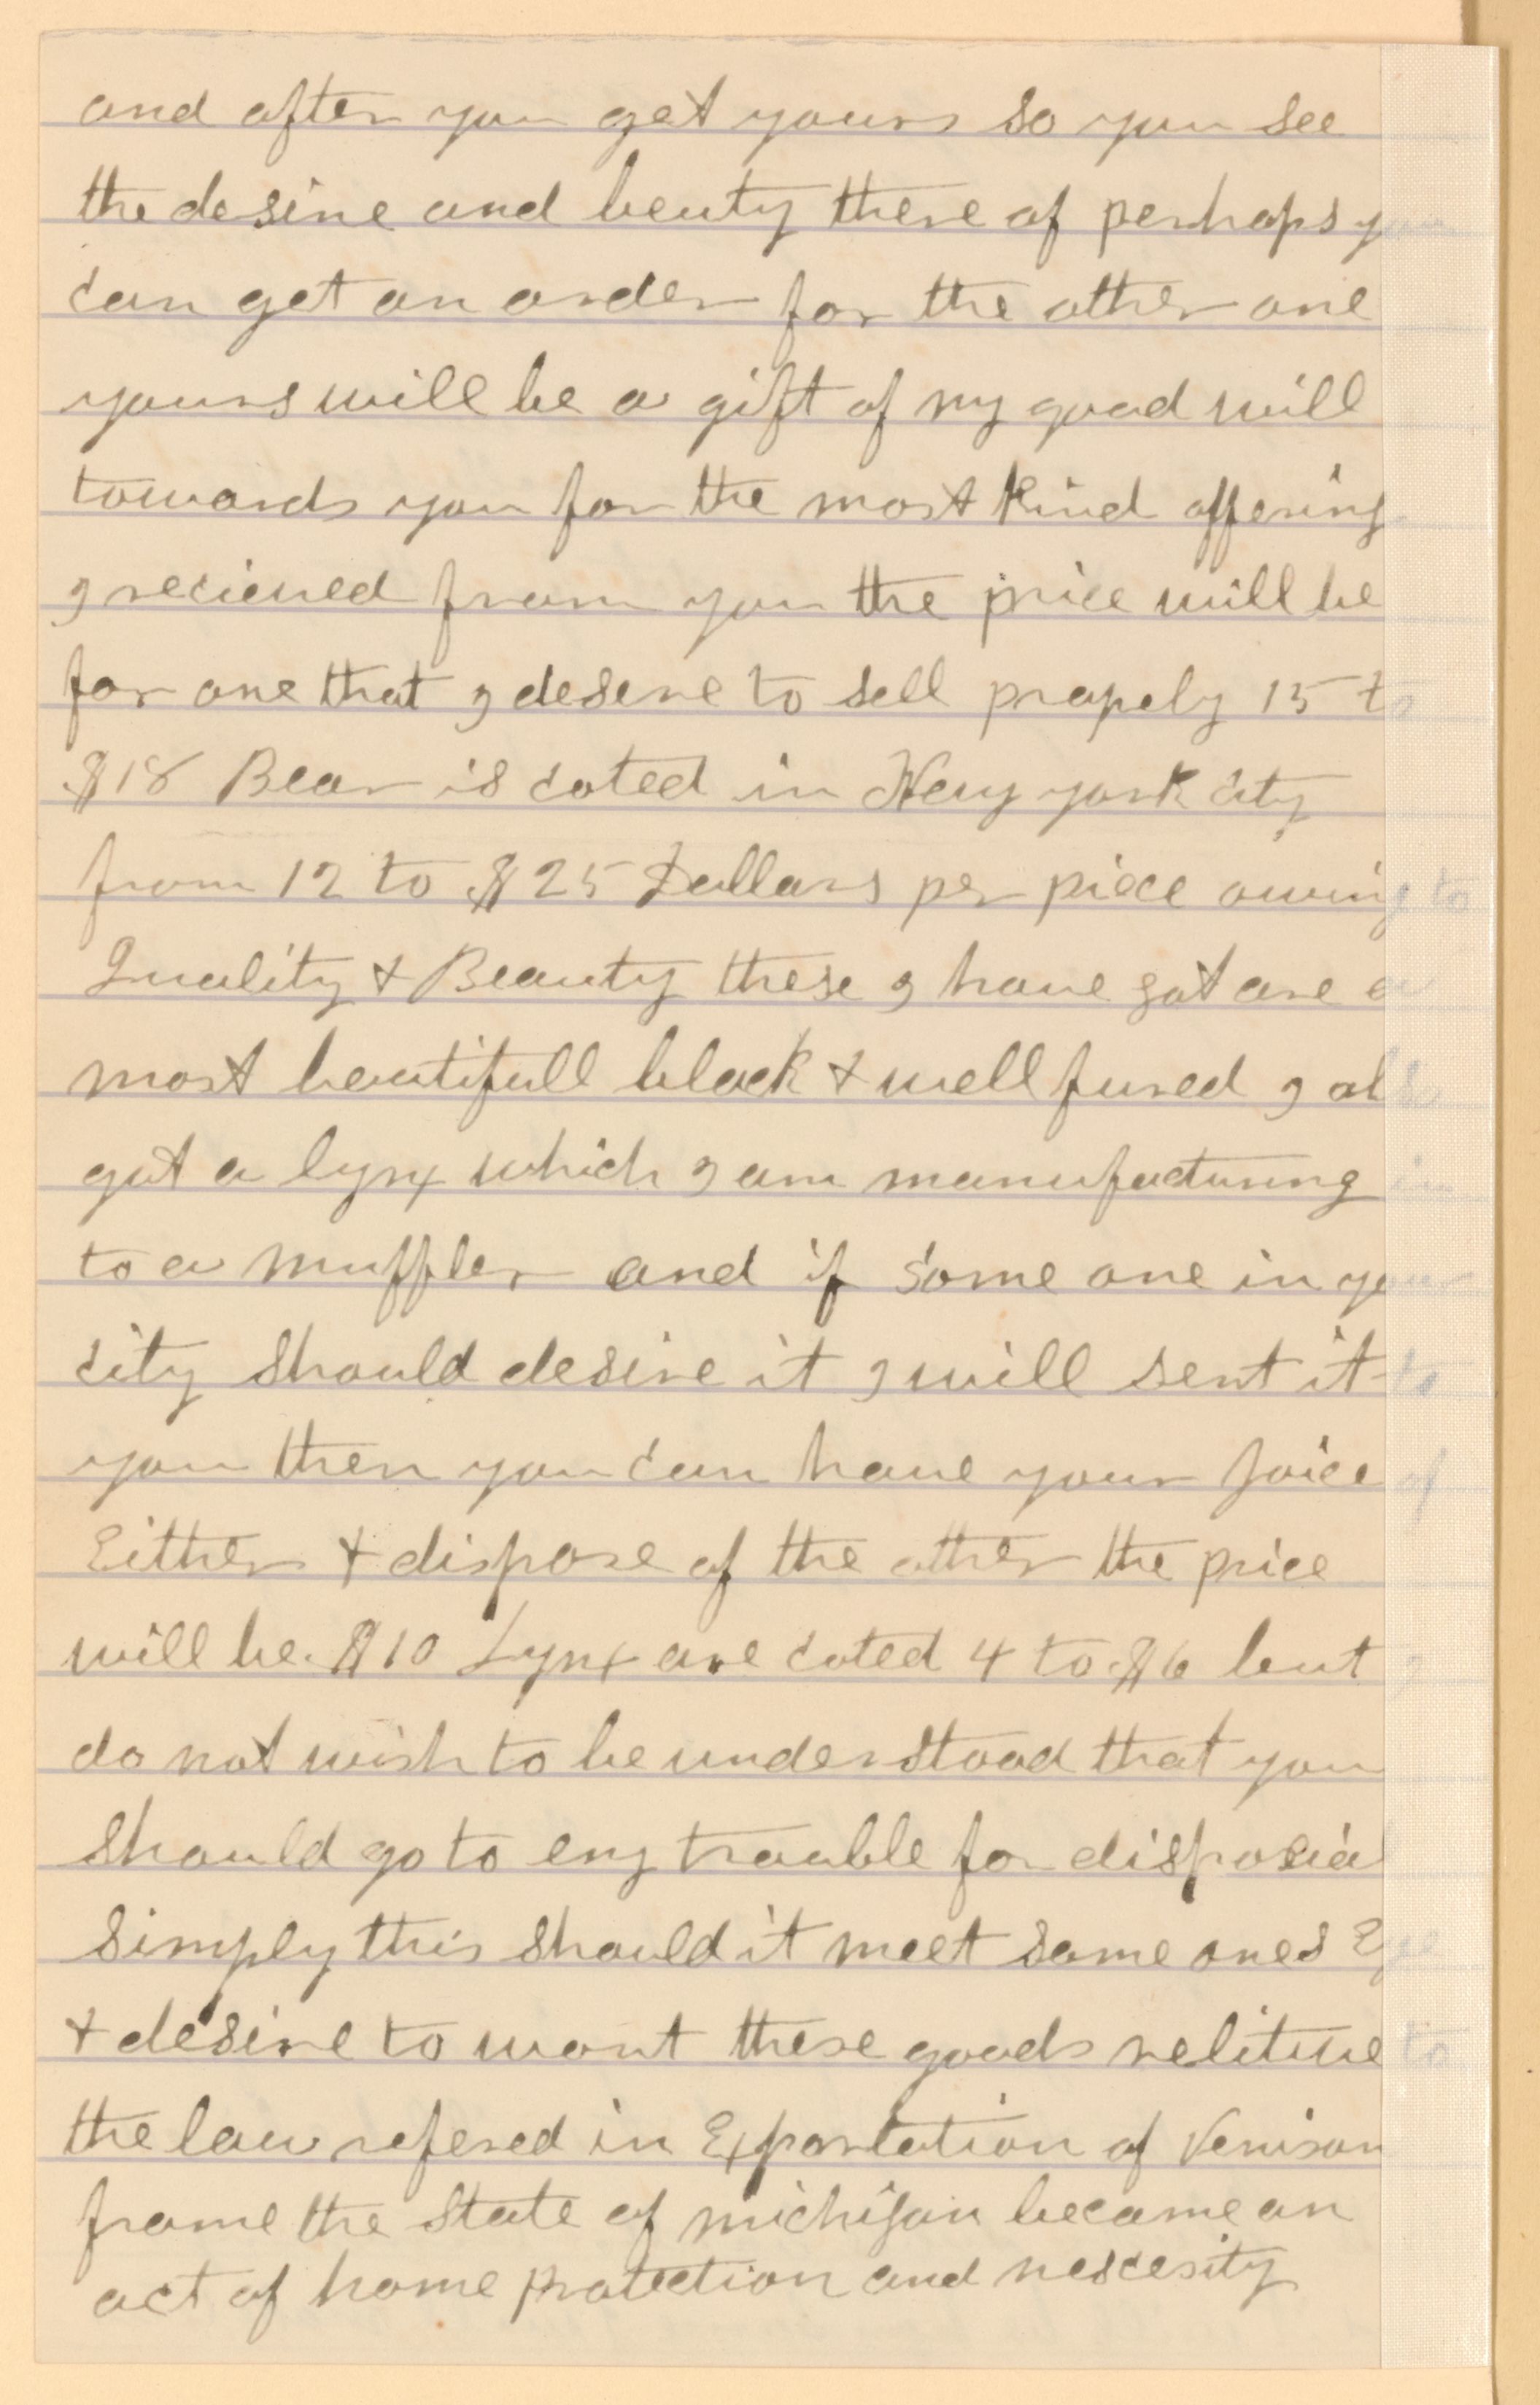 and after you get yours so you see
the desire and beuty there of perhaps you
can get an order for the other one
yours will be a gift of my good will
towards you for the most kind offering
I recieved from you the price will be
for one that I desere to sell propely 15 to
$18 Bear is coted in New york city
from 12 to $25 Dollars per piece owing to
Quality & Beauty these I have got are a
most beutifull black & well fured I also
got a lynx which I am manufacturing in
to a muffler and if some one in your
city should desire it I will sent it to
you then you can have your joice of
Either & dispose of the other the price
will be $10 Lynx are coted 4 to $6 but I
do not wish to be understood that you
should go to eny trouble for
simply this should it meet some ones Eye
& desire to want these goods relitive to
the law refered in Exportation of Venison
frome the State of michigan became an
act of home protection and nescesity